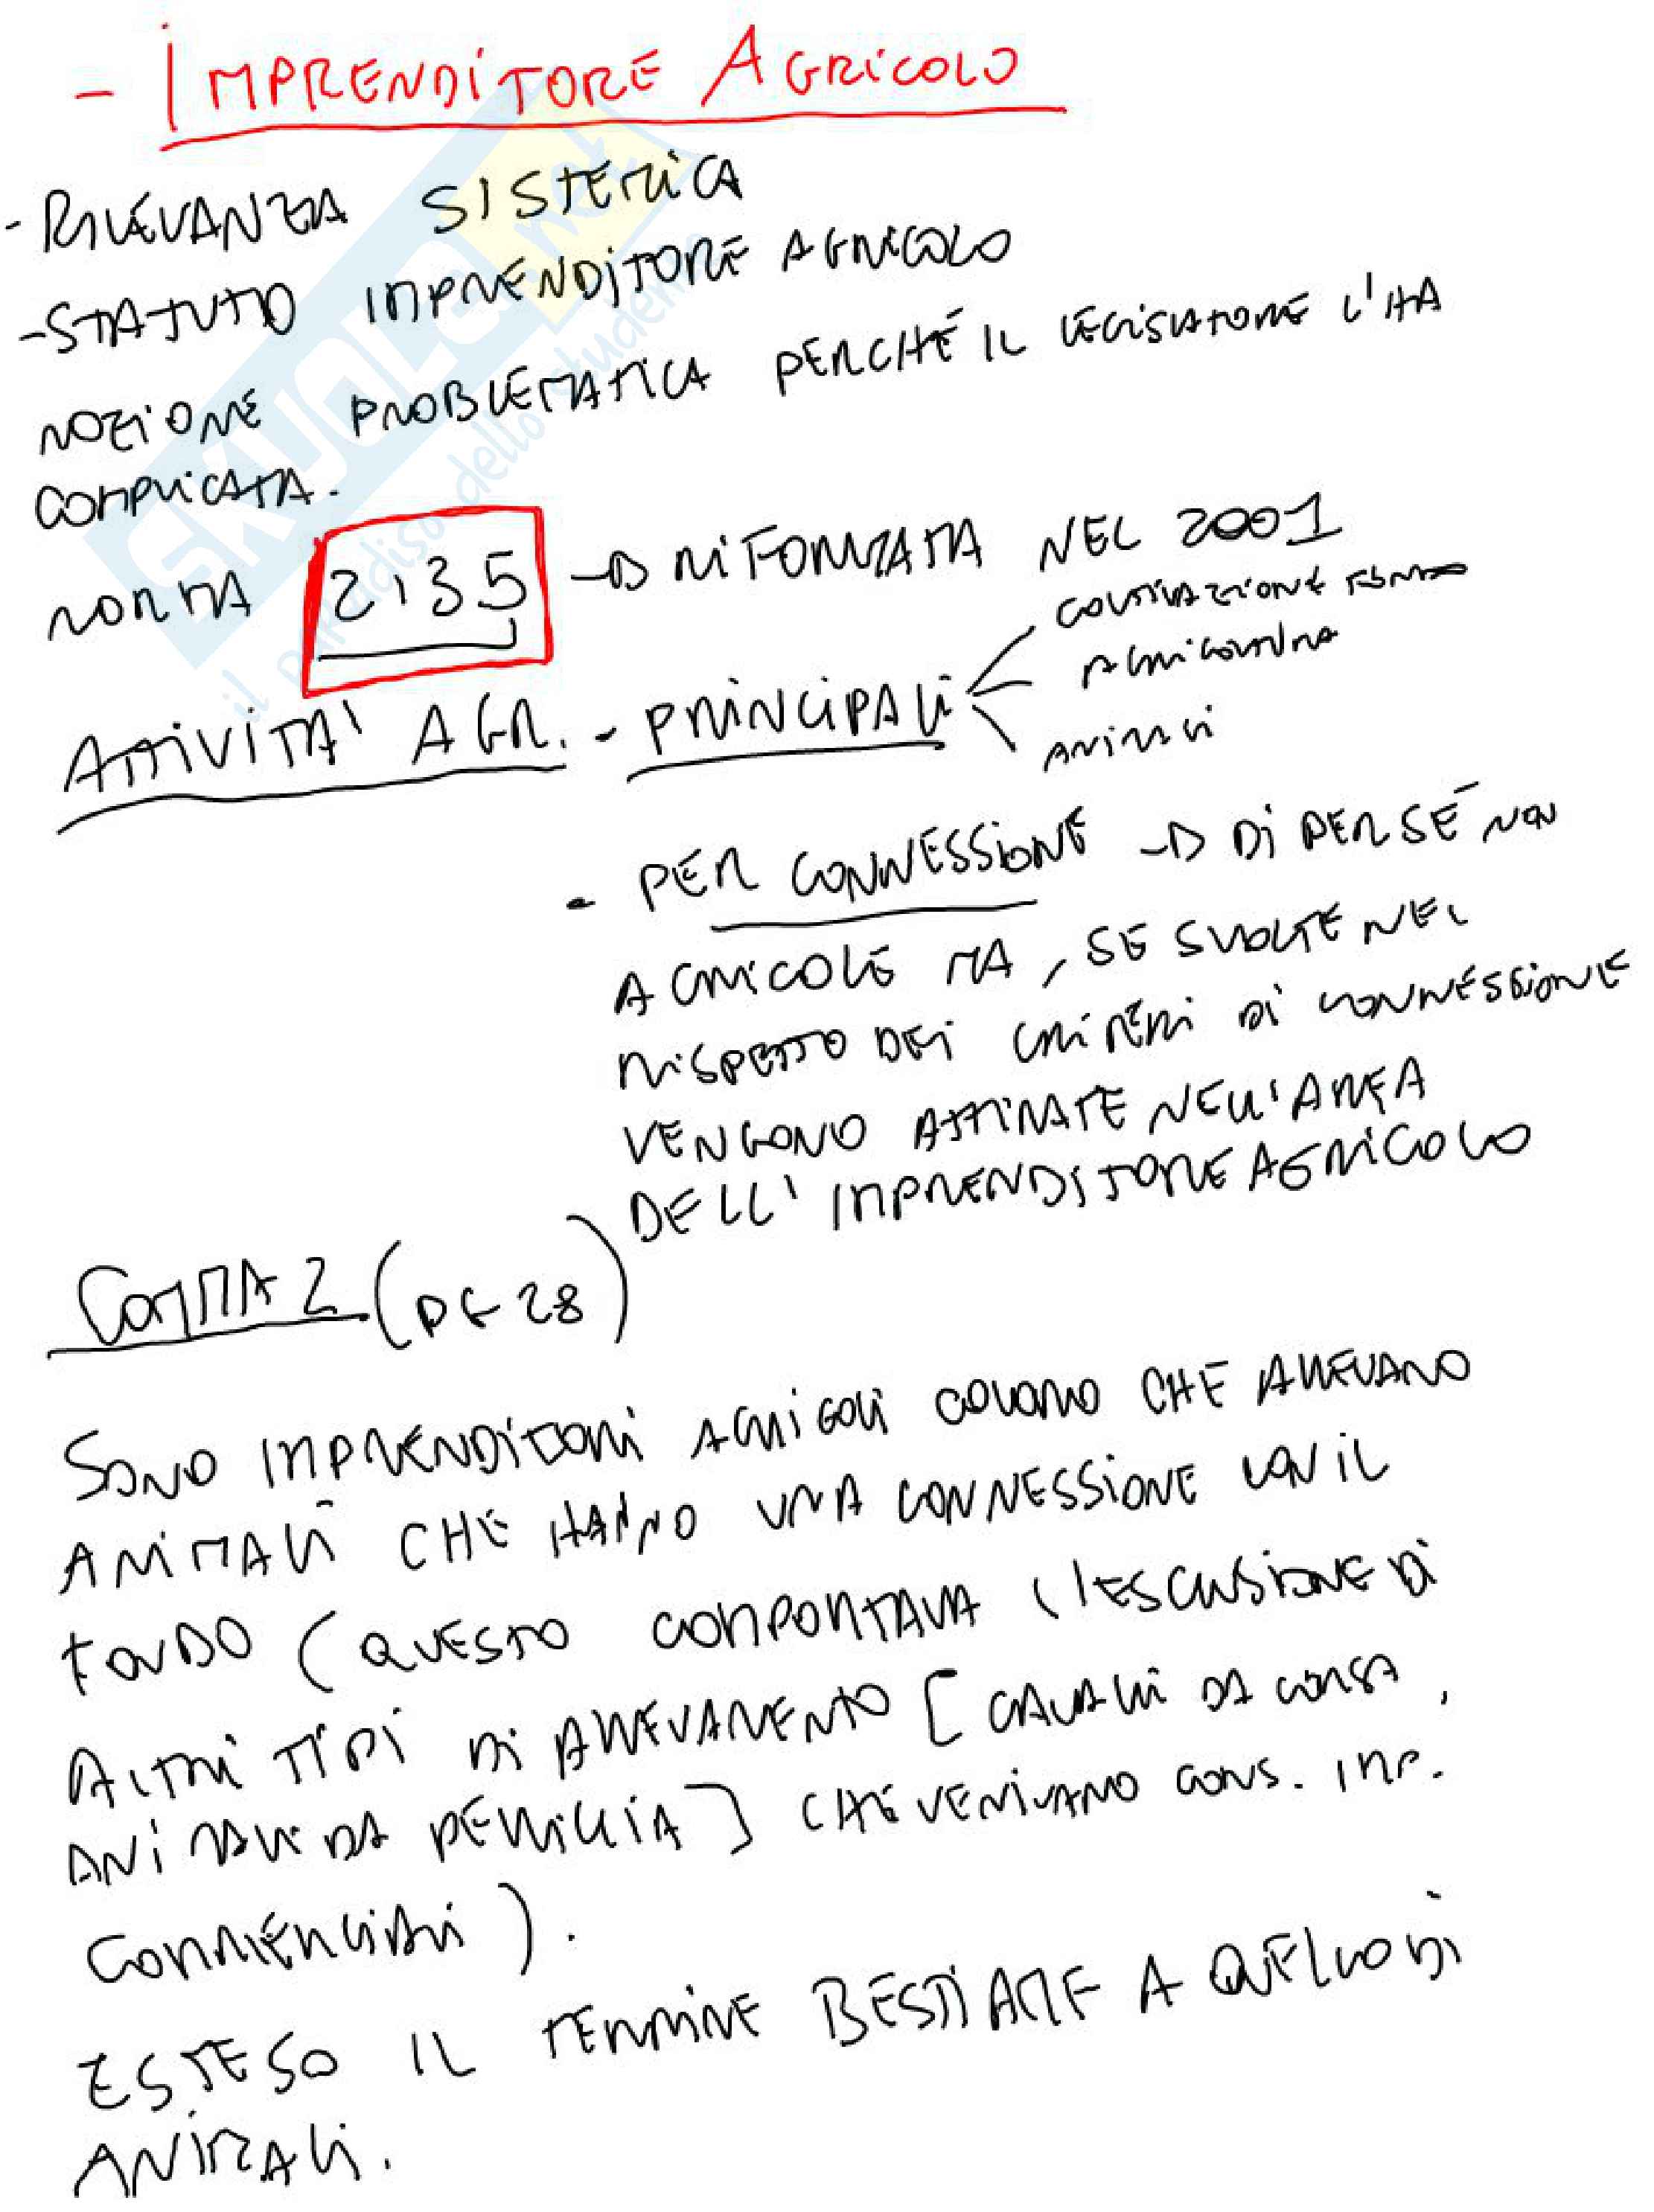 - IMPRENDITORE AGRICOLO
- RILEVANZA SISTEMICA
- STATUTO IMPRENDITORE AGRICOLO
NOZIONE PROBLEMATICA PERCHÉ IL LEGISLATORE L'HA
COMPLICATA.
NORMA 2135 → RIFORMATA NEL 2001
COLTIVAZIONE
ATTIVITA' AGR. - PRINCIPALI
AGRICOLTURA
ANIMALI
- PER CONNESSIONE → DI PER SÉ NON
AGRICOLE MA, SE SVOLTE NEL
RISPETTO DEI CRITERI DI CONNESSIONE
VENGONO ATTIRATE NELL'AREA
DELL'IMPRENDITORE AGRICOLO
COMMA 2 ( 28)
SONO IMPRENDITORI AGRICOLI COLORO CHE ALLEVANO
ANIMALI CHE HANNO UNA CONNESSIONE CON IL
FONDO (QUESTO COMPORTAVA L'ESCLUSIONE DI
ALTRI TIPI DI ALLEVAMENTO [CAVALLI DA CORSA,
ANIMALI DA PELLICCIA] CHE VENIVANO CONS. IMP.
COMMERCIALI).
ESTESO IL TERMINE BESTIAME A QUELLO DI
ANIMALI.
SKUOLA.net
il paradiso dello studente